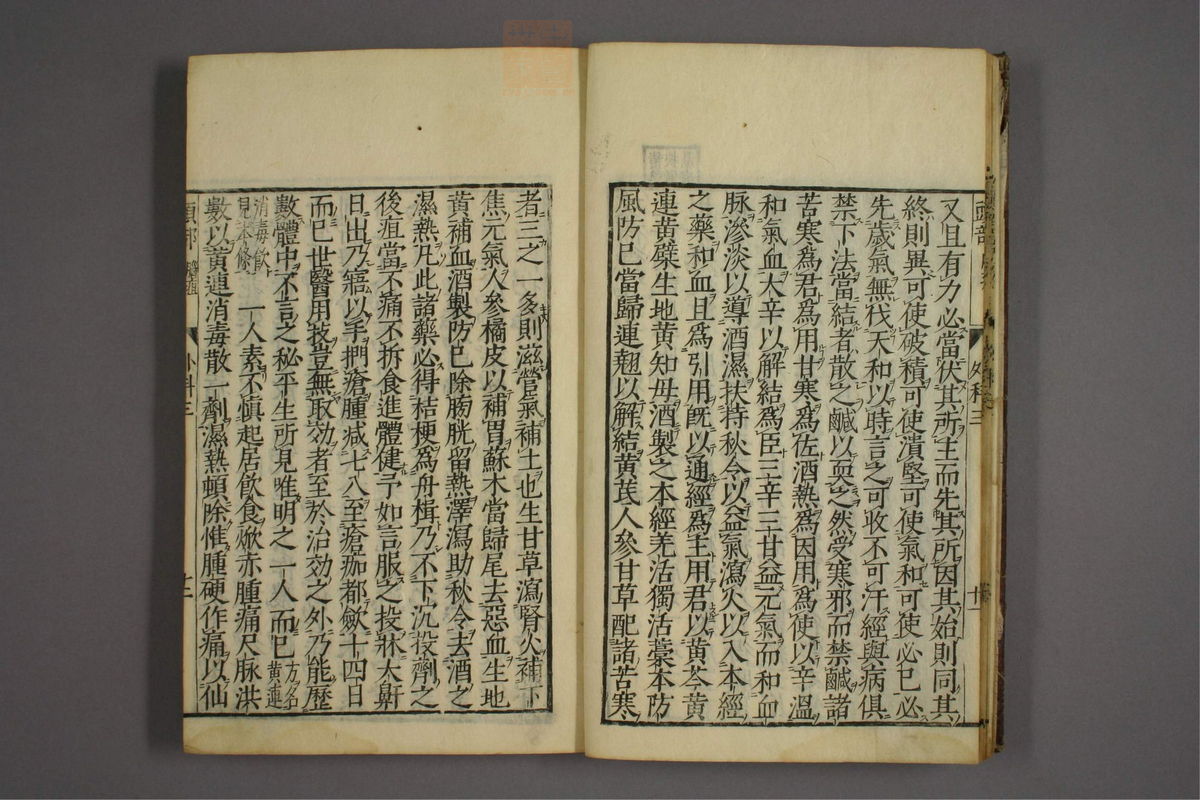 又且有力必當伏其所主而先其所因其始則同其
終則異可使破積可使潰堅可使氣和可使必已必
先歲氣無伐天和以時言之可收不可汗經與病俱
禁下法當結者散之鹹以耎之然受寒邪而禁鹹諸
苦寒爲君爲用甘寒爲佐酒熱爲因用爲使以辛溫
和氣血大辛以解結爲臣三辛三甘益元氣而和血
脉滲淡以導酒濕扶持秋令以益氣瀉火以入本經
之藥和血且爲引用既以通經爲主用君以黄芩黄
連黄蘗生地黄知母酒製之本經羌活獨活藁本防
風防已當歸連翹以解結黄芪人參甘草配諸苦寒
外科三
者三之一多則滋營氣補土也生甘草瀉腎火補下
焦元氣人參橘皮以補胃蘇木當歸尾去惡血生地
黄補血酒製防已除膀胱留熱澤瀉助秋令去酒之
濕熱凡此諸藥必得桔梗爲舟楫乃不下沉投劑之
後疽當不痛不拆食進體健予如言服之投牀大鼾
日出乃寤以手捫瘡腫减七八至瘡痂都斂十四日
而已世醫用技豈無取効者至於治効之外乃能歷
數體中不言之秘平生所見唯明之一人而已方名黄連
消毒飲見本條 一人素不愼起居飲食焮赤腫痛尺脉洪
數以黄連消毒散一劑濕熱頓除惟腫硬作痛以仙
外科三